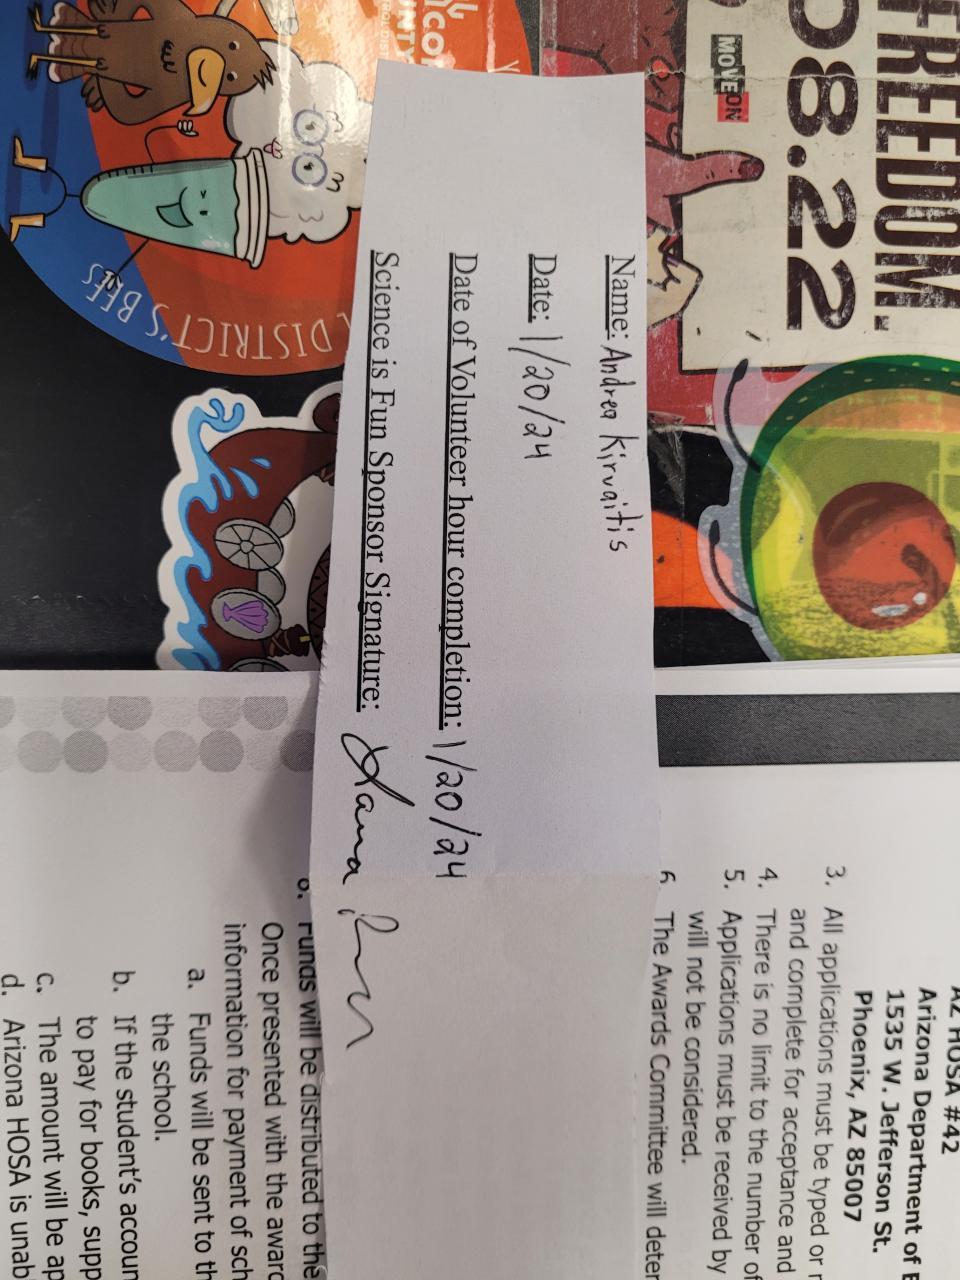 Name: Andrea Kirvaitis
Date: 1/20/24
Date of Volunteer hour completion: 1/20/24
Science is Fun Sponsor Signature:
FREEDOM.
08.22
MOVEON
DISTRICT'S BEES
AZ HOSA #42
Arizona Department of
1535 W. Jefferson St.
Phoenix, AZ 85007
3. All applications must be typed or
and complete for acceptance and
4. There is no limit to the number of
5. Applications must be received by
will not be considered.
6. The Awards Committee will deter
Funds will be distributed to the
Once presented with the awar
information for payment of sch
a. Funds will be sent to th
the school.
b. If the student's accoun
to pay for books, supp
c. The amount will be ap
d. Arizona HOSA is unab